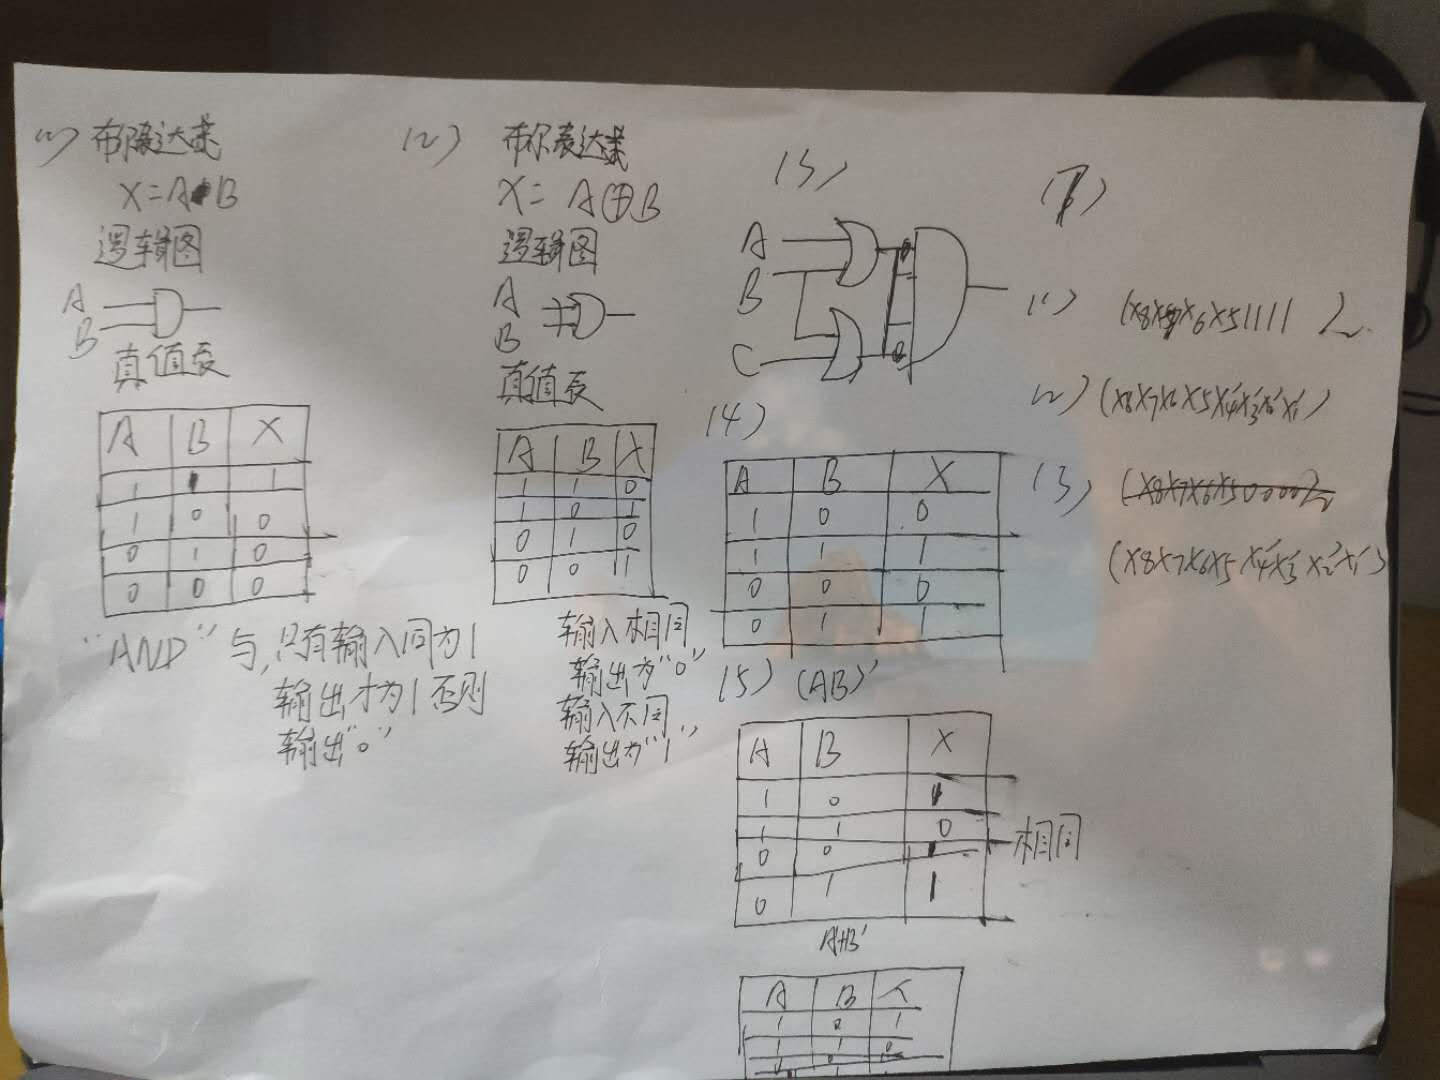 (1) 布尔表达式
X=A•B
逻辑图
A
B
真值表
A B X
1 1 1
1 0 0
0 1 0
0 0 0
"AND"与,只有输入同为1
输出才为1否则
输出"0"
(2) 布尔表达式
X= A⊕B
逻辑图
A
B
真值表
A B X
1 1 0
1 0 1
0 1 0
0 0 1
输入相同
输出为"0"
输入不同
输出为"1"
(3)
A
B
C
(4)
A B X
1 0 0
1 1 1
0 0 0
0 1 1
(5) (AB)'
A B X
1 0 1
1 1 0
0 0 1
0 1 1
相同
A'+B'
A B X
1 0 1
1 1 0
0 0
(1) (X8X7X6X51111)2
(2) (X8X7X6X5X4'X3'X2'X1')
(3) (X8X7X6X50000)2
(X8X7X6X5X4'X3'X2'X1')